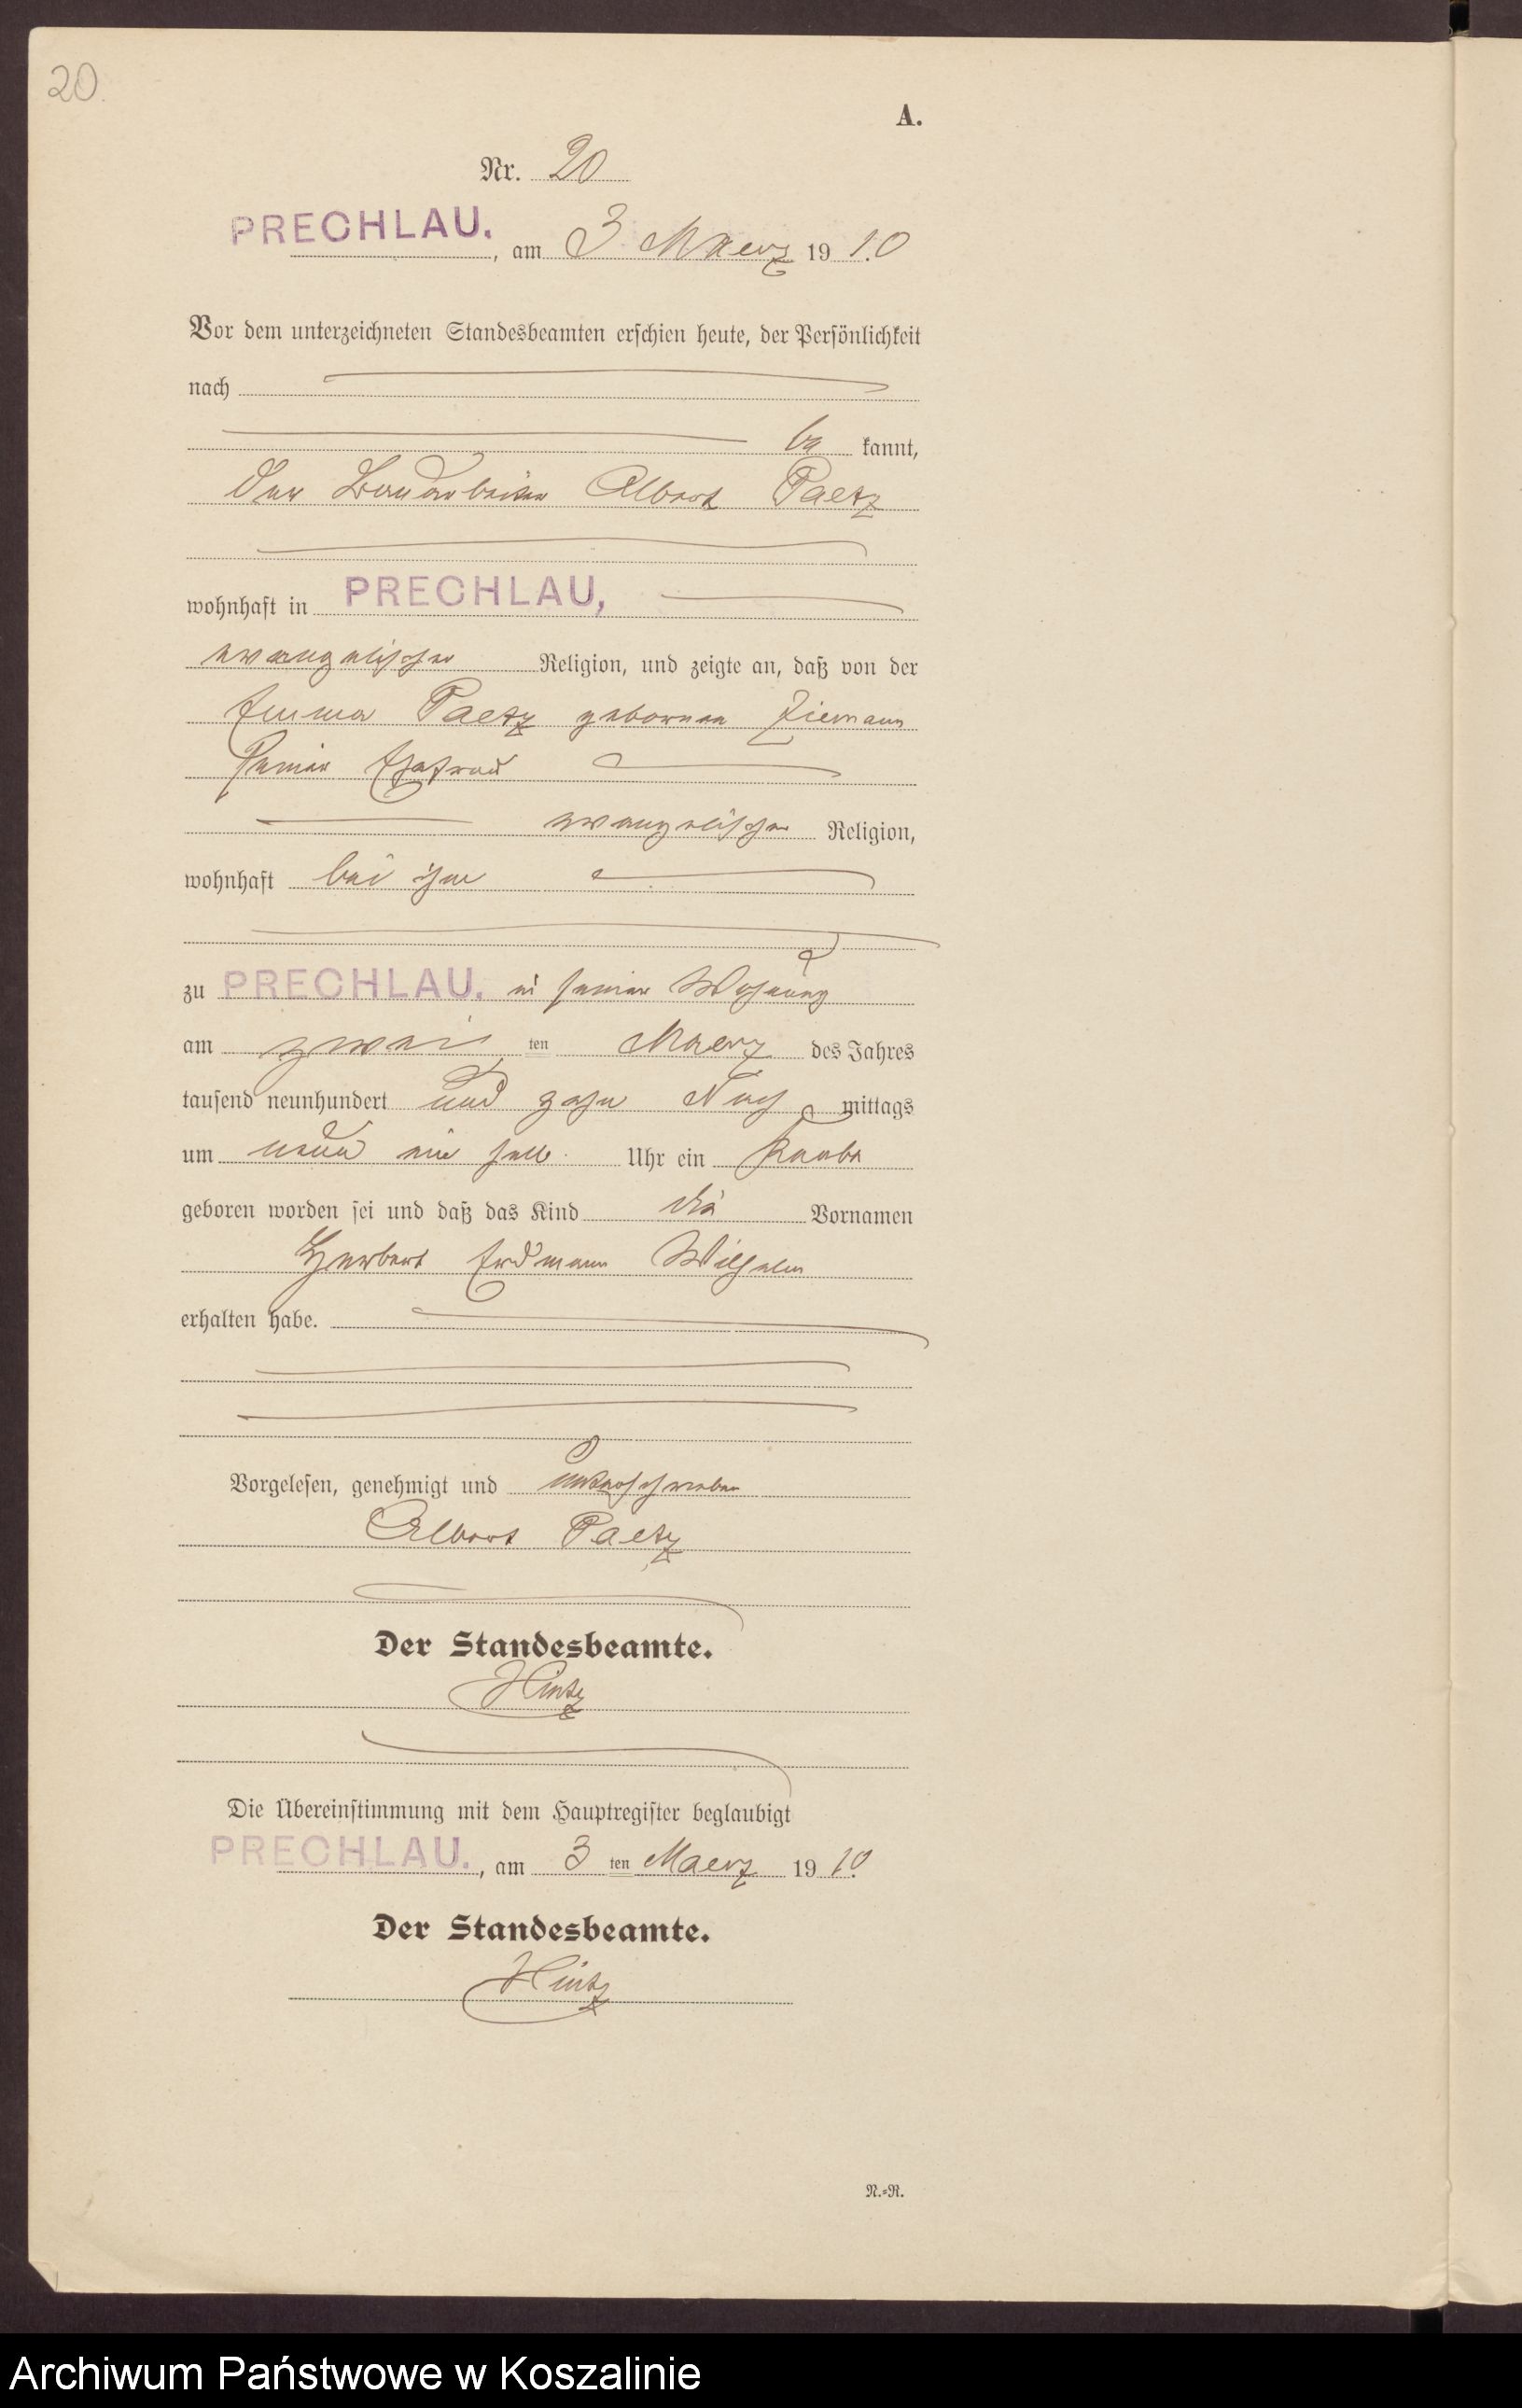 20.
A.
Nr. 20
PRECHLAU. , am 3 Maerz 1910
Vor dem unterzeichneten Standesbeamten erschien heute, der Persönlichkeit
nach
be kannt,
Der Albert Paetz
wohnhaft in PRECHLAU,
evangelischer Religion, und zeigte an, daß von der
Emma Paetz geborenen Ziemann
seiner Ehefrau
evangelischer Religion,
wohnhaft bei ihm
zu PRECHLAU. in seiner Wohnung
am zwei ten Maerz des Jahres
tausend neunhundert und zehn Nach mittags
um neun ein halb Uhr ein Knabe
geboren worden sei und daß das Kind die Vornamen
Herbert Erdmann Wilhelm
erhalten habe.
Vorgelesen, genehmigt und unterschrieben
Albert Paetz
Der Standesbeamte.
Hintz
Die Übereinstimmung mit dem Hauptregister beglaubigt
PRECHLAU. , am 3 ten Maerz 1910.
Der Standesbeamte.
Hintz
N.=R.
Archiwum Państwowe w Koszalinie